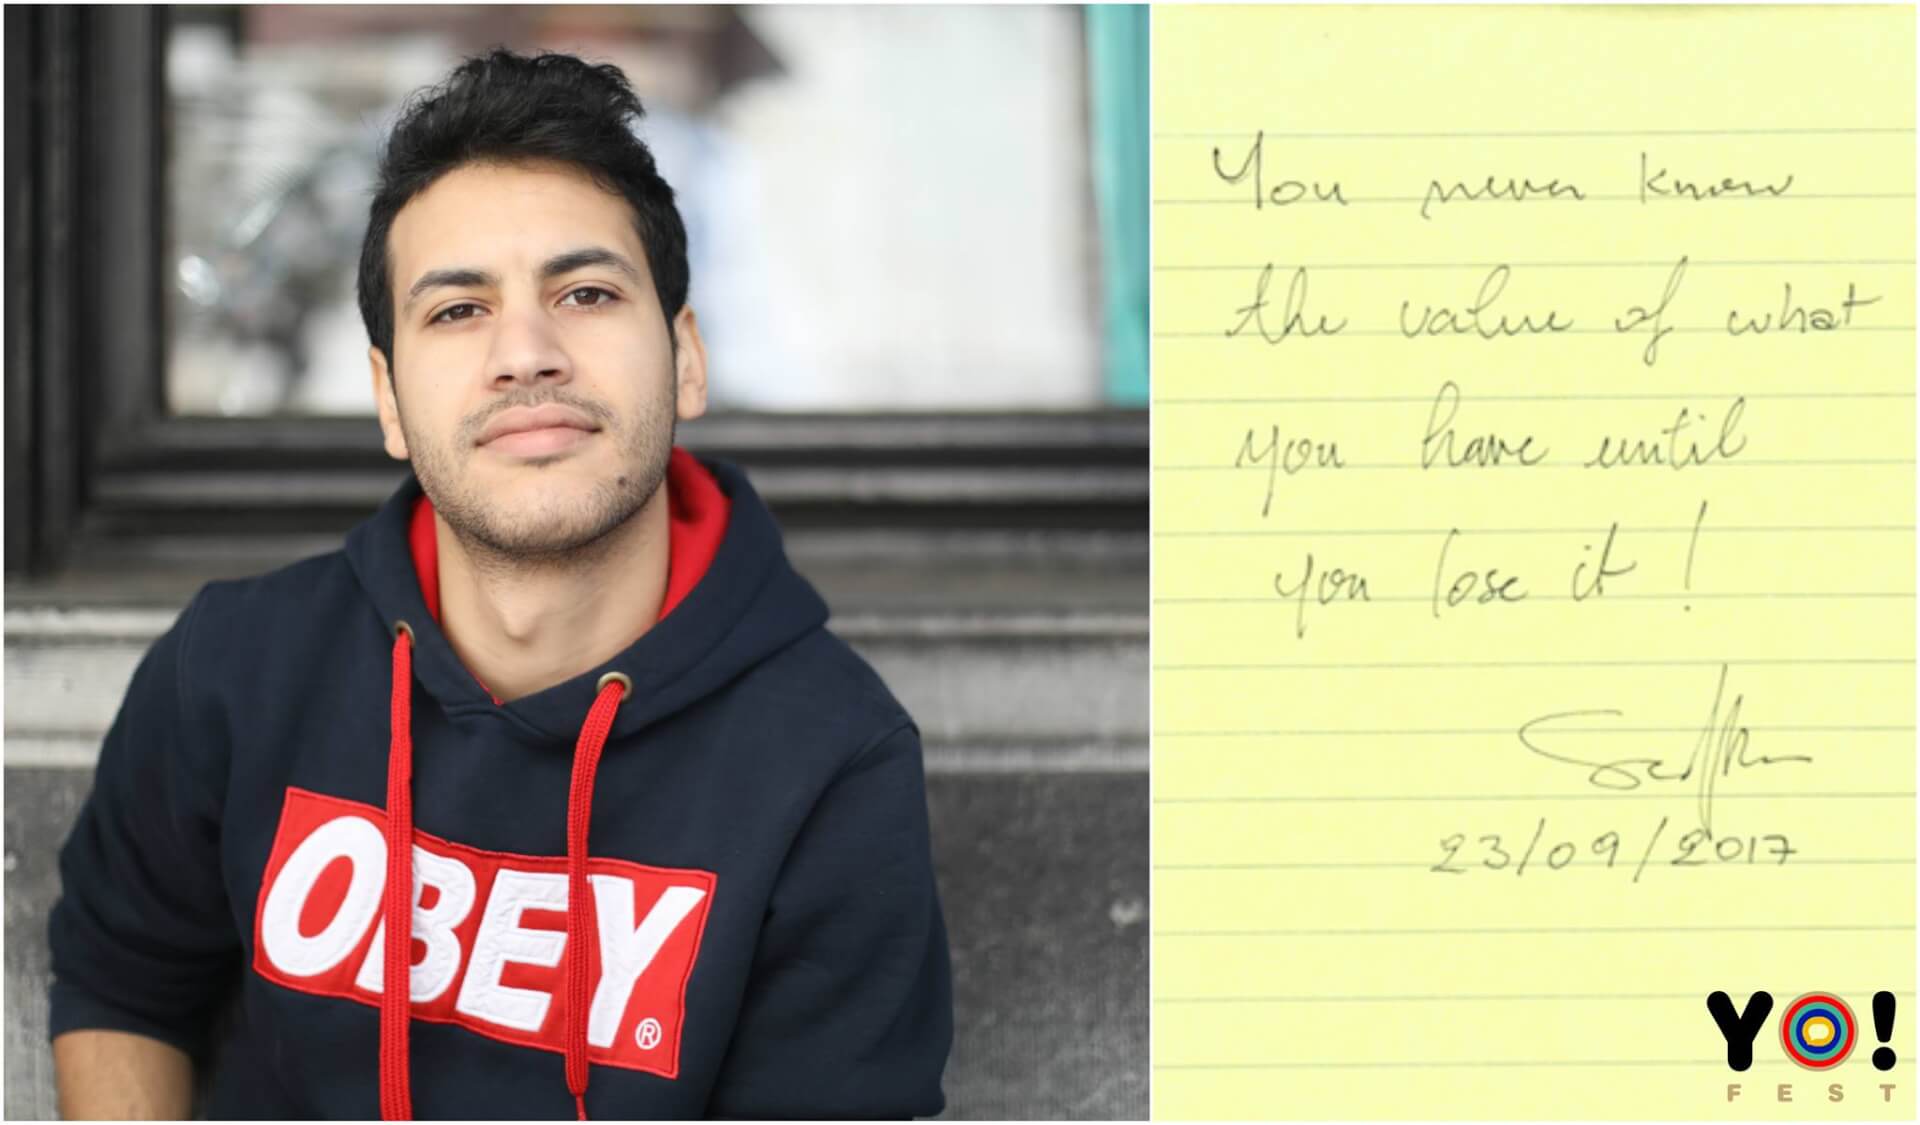 OBEY
®
You never know
the value of what
you have until
you lose it !
23/09/2017
YO!
FEST